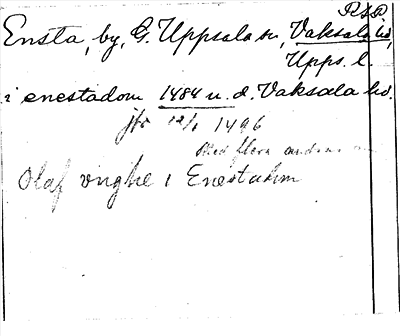 RAP
Ensta, by, G. Uppsala sn, Vaksala hd,
Upps. l.
i enestadom 1484 u. d. Vaksala hd.
jfr 12/1 1496
Med flera andra
Olaf vnghe i Enestadom